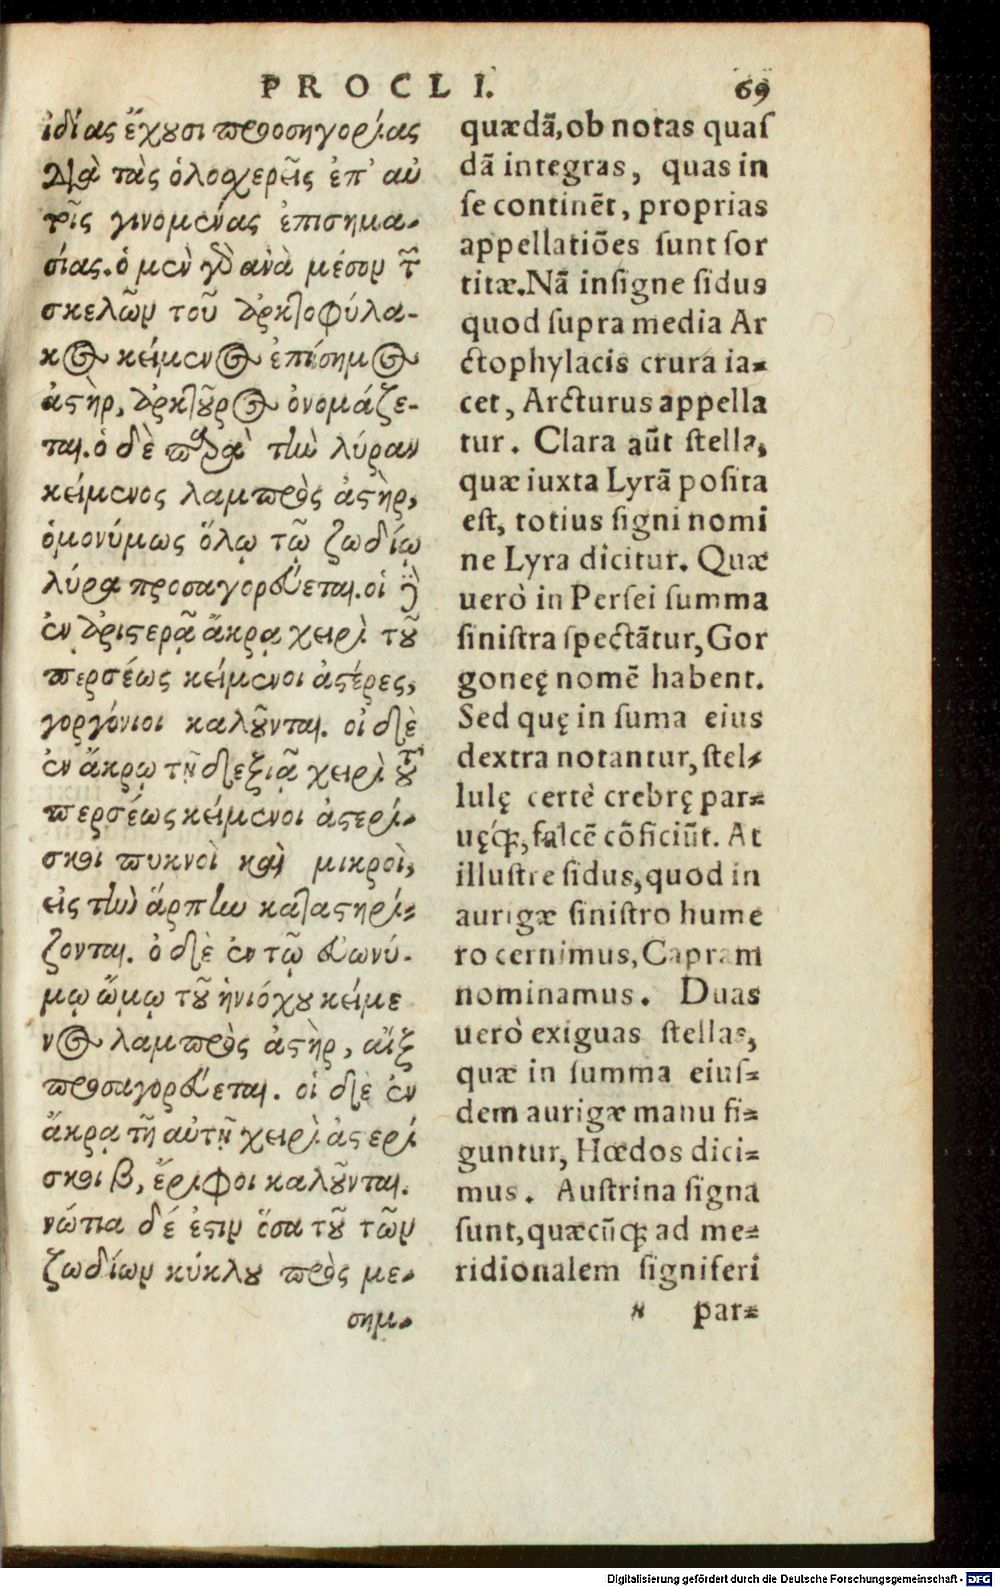 PROCLI I. 69
ἰδίας ἔχουσι προσηγορίας
διὰ τὰς ὁλοχερεῖς ἐπ' αὐ
τοῖς γινομένας ἐπισημα-
σίας. ὁ μὲν γὰρ ἀνὰ μέσον τῶν
σκελῶν τοῦ ἀρκτοφύλα-
κος κείμενος ἐπίσημος
ἀστὴρ, ἀρκτοῦρος ὀνομάζε-
ται. ὁ δὲ παρὰ τὴν λύραν
κείμενος λαμπρὸς ἀστὴρ,
ὁμονύμως ὅλῳ τῷ ζωδίῳ
λύρα προσαγορεύεται. οἱ δὲ
ἐν ἀριστερᾷ ἄκρᾳ χειρὶ τοῦ
περσέως κείμενοι ἀστέρες,
γοργόνιοι καλοῦνται. οἱ δὲ
ἐν ἄκρῳ τῇ δεξιᾷ χειρὶ τοῦ
περσέως κείμενοι ἀστερί-
σκοι πυκνοὶ καὶ μικροὶ,
εἰς τὴν ἅρπην καταστηρί-
ζονται. ὁ δὲ ἐν τῷ εὐωνύ-
μῳ ὤμῳ τοῦ ἡνιόχου κείμε
νος λαμπρὸς ἀστὴρ, αἴξ
προσαγορεύεται. οἱ δὲ ἐν
ἄκρᾳ τῇ αὐτῇ χειρὶ ἀστερί
σκοι β, ἔριφοι καλοῦνται.
νώτια δέ ἐστιν ὅσα τοῦ τῶν
ζωδίων κύκλου πρὸς με-
σημ-
quædā, ob notas quaſ
dā integras, quas in
ſe continēt, proprias
appellatiōes ſunt ſor
titæ. Nā inſigne ſidus
quod ſupra media Ar
ctophylacis crura ia-
cet, Arcturus appella
tur. Clara aūt ſtella,
quæ iuxta Lyrā poſita
eſt, totius ſigni nomi
ne Lyra dicitur. Quæ
uerò in Perſei ſumma
ſiniſtra ſpectātur, Gor
goneę nomē habent.
Sed quę in ſuma eius
dextra notantur, ſtel-
lulę certè crebrę par-
uęq́;, falcē cōficiūt. At
illuſtre ſidus, quod in
aurigæ ſiniſtro hume
ro cernimus, Capram
nominamus. Duas
uerò exiguas ſtellas,
quæ in ſumma eiuſ-
dem aurigæ manu fi-
guntur, Hœdos dici-
mus. Auſtrina ſigna
ſunt, quæcūq; ad me-
ridionalem ſigniferi
par-
Digitalisierung gefördert durch die Deutsche Forschungsgemeinschaft - DFG